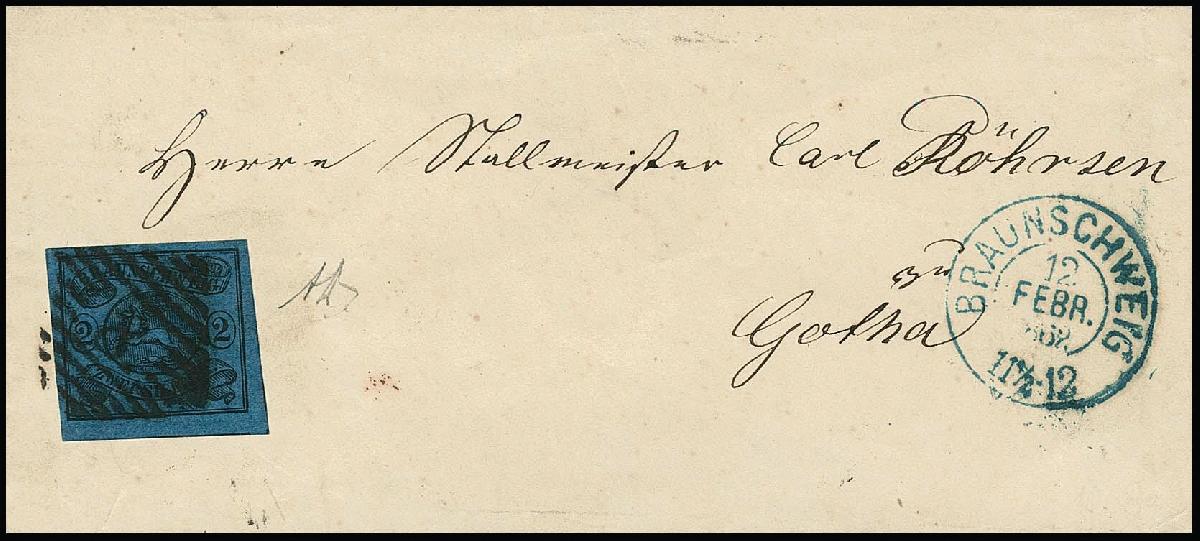 Herrn Stallmeister Carl Röhrsen
zu
Gotha
BRAUNSCHWEIG
12
FEBR.
11½-12
BRAUNSCHWEIG
2 2